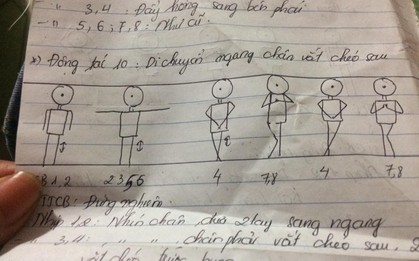 3,4 : Đẩy hông sang bên phải
5, 6, 7, 8 : Như cũ.
Động tác 10 : Di chuyển ngang chân vắt chéo sau
1, 2 2356 4 7,8 4 7,8
TTCB : Đứng nghiêm
: Nhún chân, đưa 2 tay sang ngang
3,4 : " " , chân phải vắt chéo sau, 2
vắt chéo trước bụng